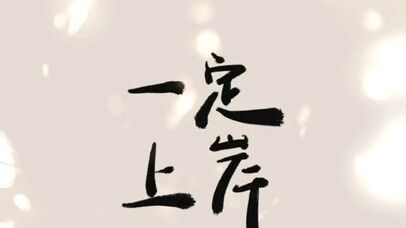 一定
上岸